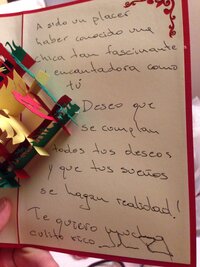 A sido un placer
haber conocido una
chica tan fascinante
y encantadora como
tú
Deseo que
se cumplan
todos tus deseos
y que tus sueños
se hagan realidad!
Te quiero mucho
culito rico